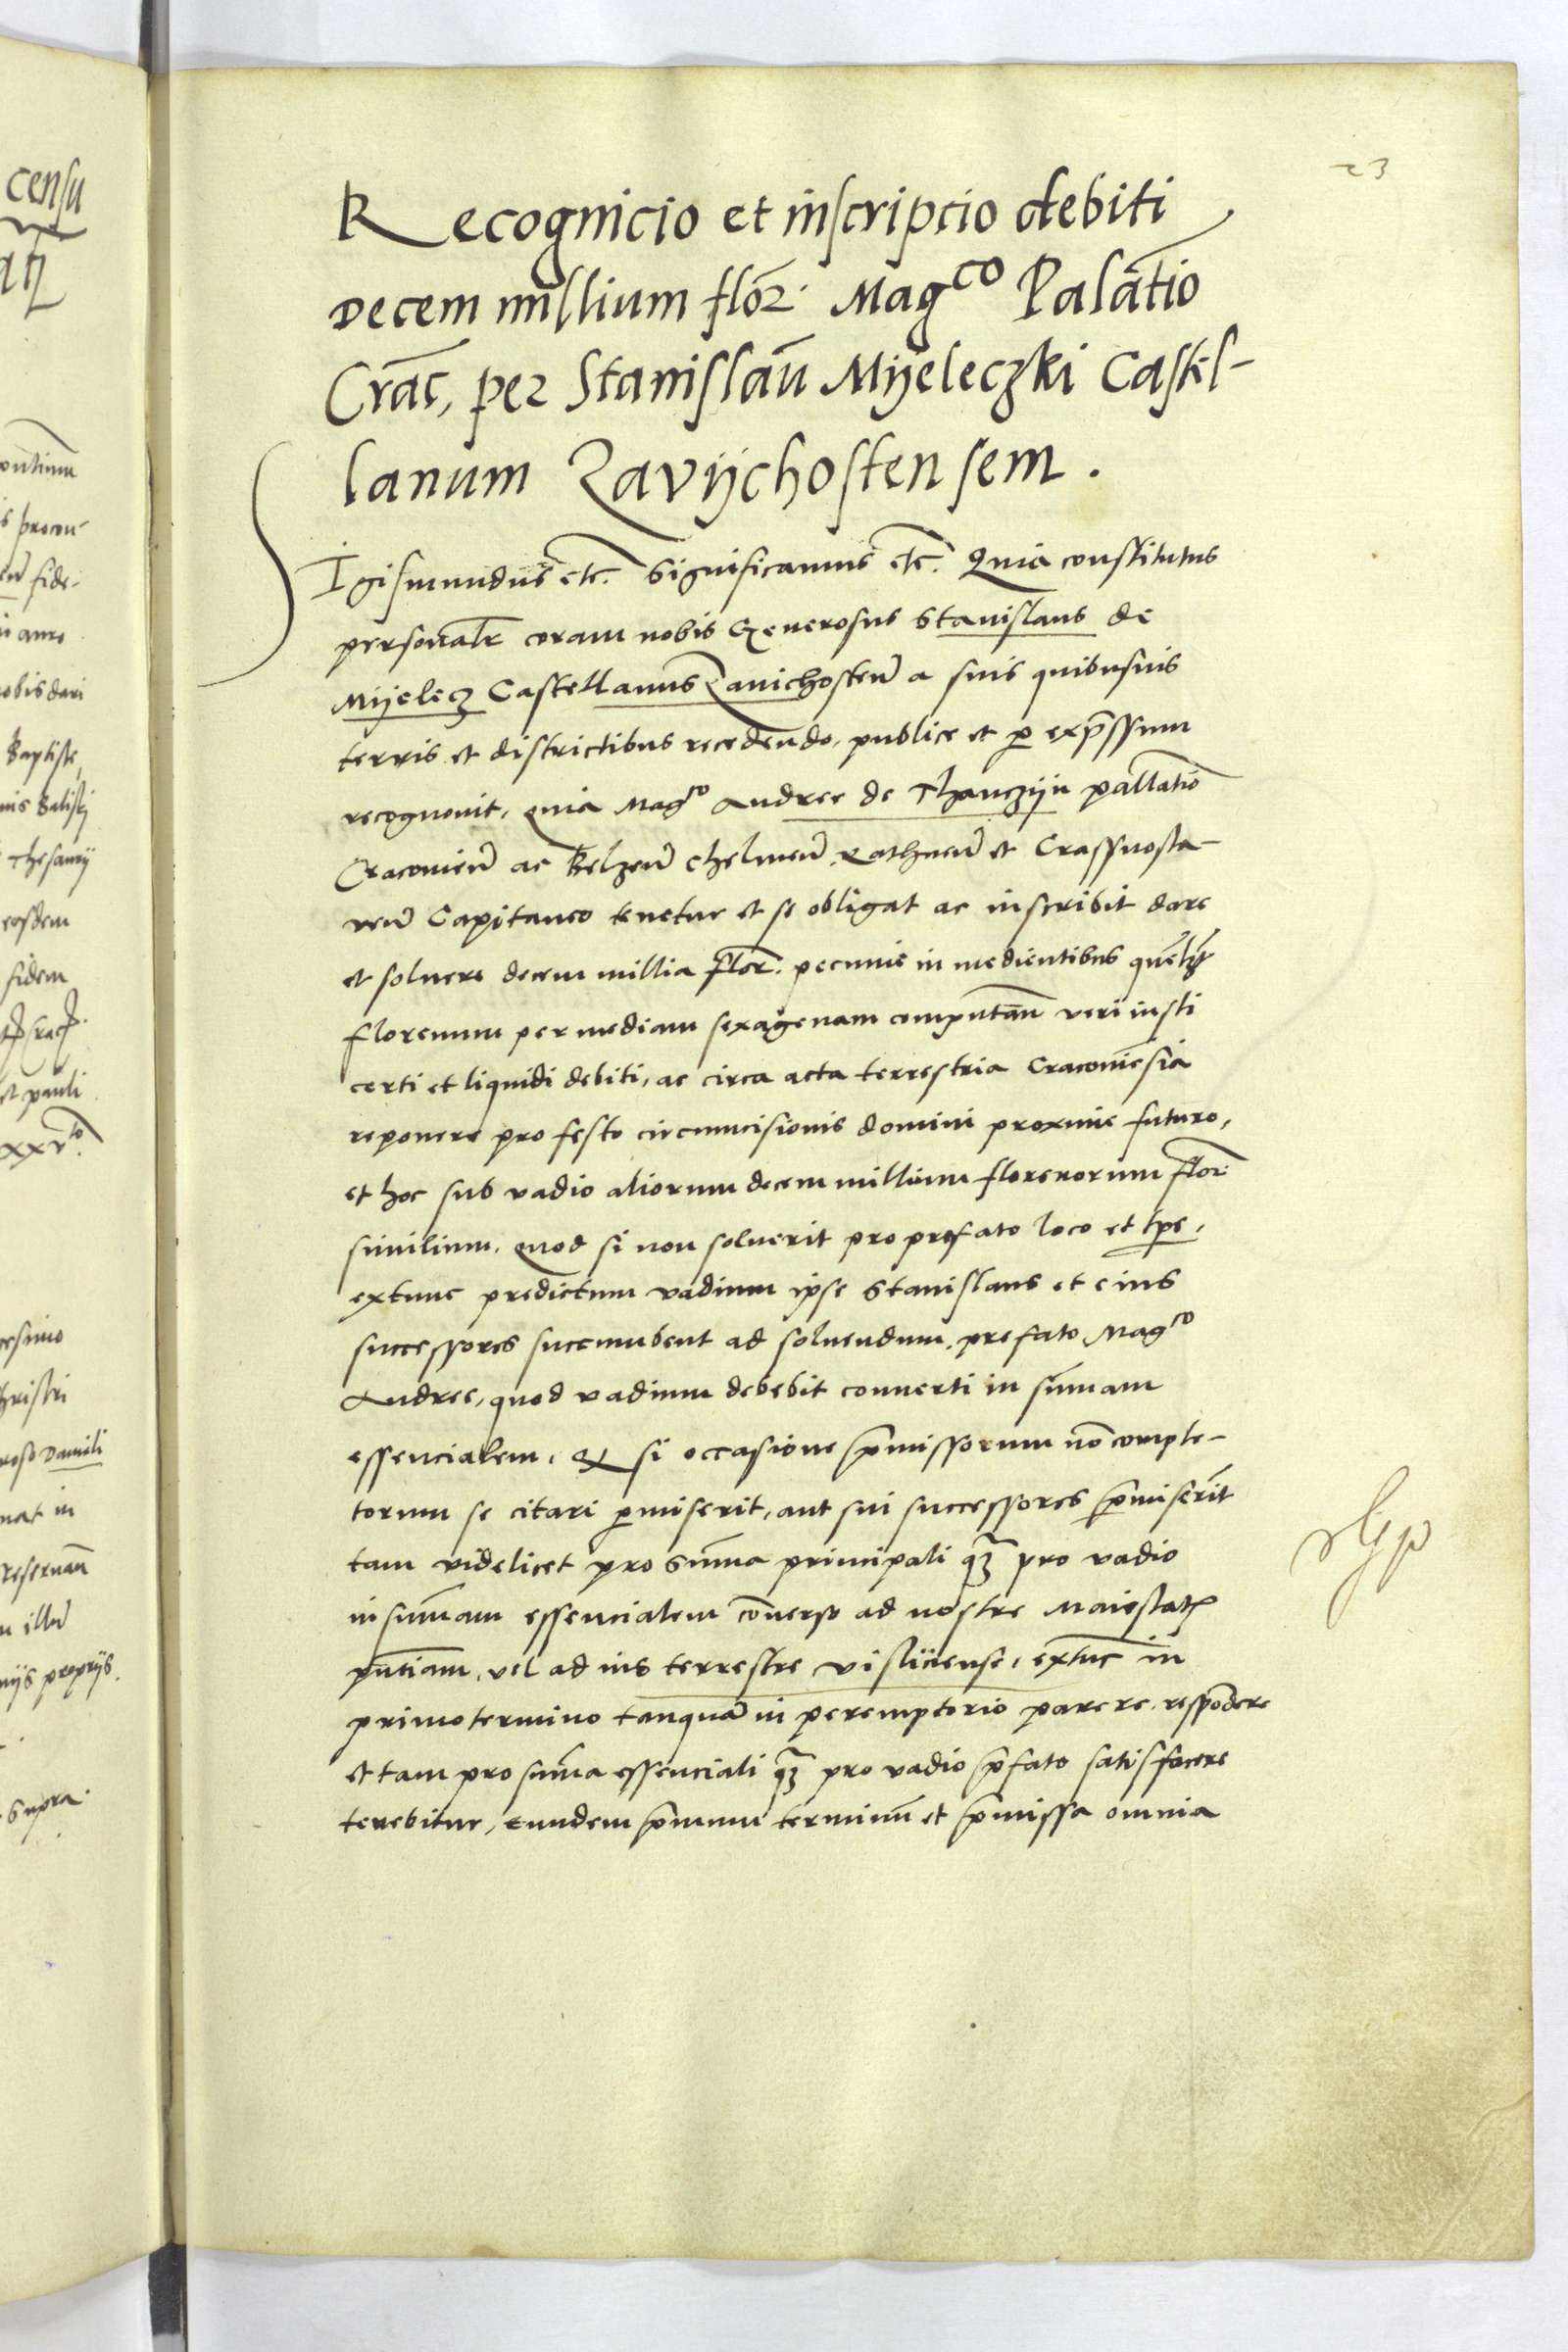 23
Recognicio et inscripcio debiti
Decem millium flor. Mag^co Palãtio
Crãc, per Stanislaũ Mijeleczki Castel-
lanum Zavijchostensem.
SIgismundus etc. Significamus etc. Quia constitutus
personalr coram nobis Generosus Stanislaus de
Mijelecz Castellanus Zauichosteñ a suis quibusuis
terris et districtibus recedendo, publice et p exp̃ssum
recognouit, quia Mag^co Andree de Thanczijn pallatiõ
Cracouieñ ac Belzeñ Chelmeñ Rathneñ et Crassnosta-
uieñ Capitaneo tenetur et se obligat ac inscribit dare
et soluere decem millia flor. pecunie in medientibus quẽlȝt
florenum per mediam sexagenam computañ veri iusti
certi et liquidi debiti, ac circa acta terrestria Cracouieñsia
reponere pro festo circumcisionis domini proxime futuro,
et hoc sub vadio aliorum decem millium florenorum flor.
similium. Quod si non soluerit pro prefato loco et tp̃e,
extunc predictum vadium ipse Stanislaus et eius
successores succumbent ad soluendum, prefato Mag^co
Andree, quod vadium debebit conuerti in sum̃am
essencialem, Et si occasione p̃missorum nõ comple-
torum se citari pmiserit, aut sui successores p̃miserĩt
tam videlicet pro sum̃a principali qȝ̃ pro vadio
in sum̃am essencialem cõuerso ad nostre Maiestatꝭ
pñtiam, vel ad ius terrestre visliciense, extũc in
primo termino tanquã in peremptorio parere, respõdere
et tam pro sum̃a essenciali qȝ̃ pro vadio p̃fato satisfacere
tenebitur, Eundem p̃mum terminũ et p̃missa omnia
censu
fidem
et pauli
xxv^to
reseruañ
proprijs.
supra.